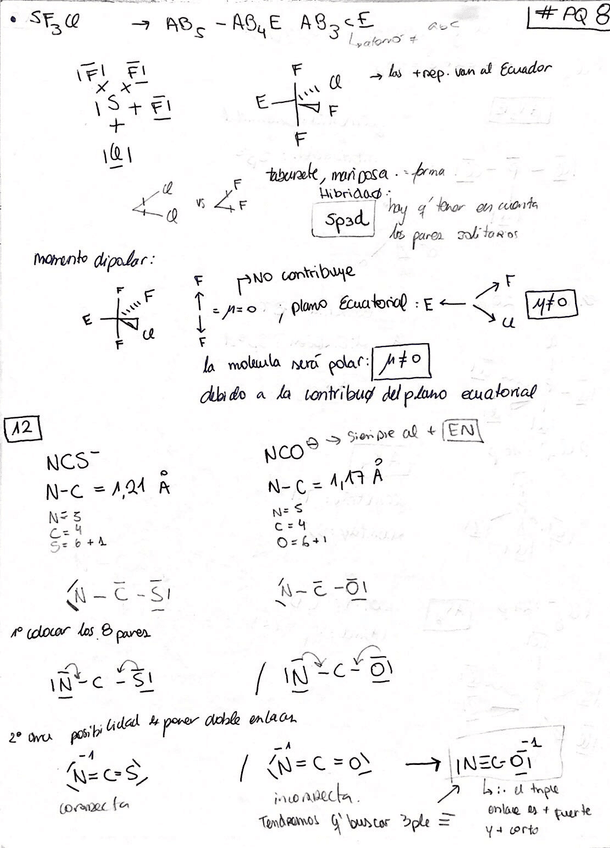 # PQ 8
• SF₃Cl → AB₅ - AB₄E AB₃cE
a b c
|F̅| F̅|
x x
|S + F̅|
+
|C̲l|
F
E Cl
F
F
→ las + rep. van al Ecuador
taburete, mariposa. = forma
Hibridac:
Sp3d
hay q' tener en cuenta
los pares solitarios
Cl
Cl
vs
F
F
momento dipolar:
F
F
E
Cl
F
F
↑
↓
F
= μ=0
NO contribuye
; plano Ecuatorial : E ←
F
Cl
μ≠0
la molecula será polar: μ≠0
debido a la contribuç del plano ecuatorial
12
NCS⁻
N-C = 1,21 Å
N=5
C=4
S=6+1
NCO⊖ → siempre al + EN
N-C = 1,17 Å
N=5
C=4
O=6+1
N - C̅ - S̅|
N - C̅ - O̅|
1º colocar los 8 pares
|N̅ - C - S̅| / |N̅ - C - O̅|
2º una posibilidad es poner doble enlace
-1
N=C=S
correcta
/
-1
N=C=O
incorrecta.
→ |N≡C-O̅| -1
Tendremos q' buscar 3ple ≡
∴ el triple
enlace es + fuerte
y + corto